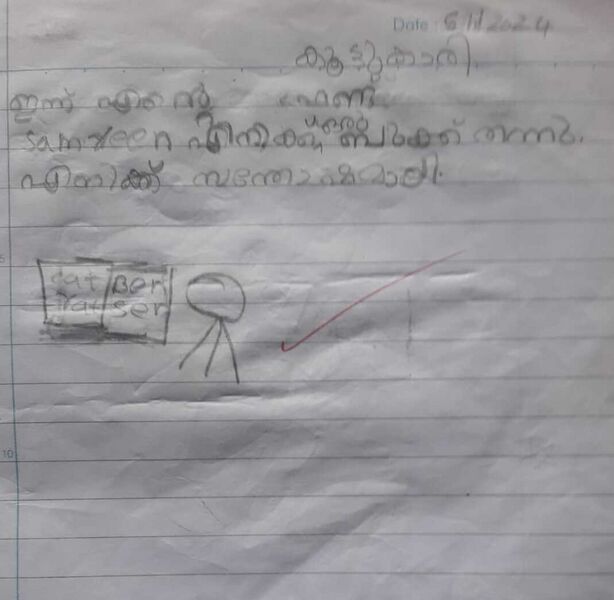 Date : 6/11/2024
കൂട്ടുകാരി.
ഇന്ന് എന്റെ ഫ്രണ്ട്
Samreen എനിക്കു ഒരു ബുക്ക് തന്നു.
എനിക്ക് സന്തോഷമായി.
5
cat Ben
rat ser
10